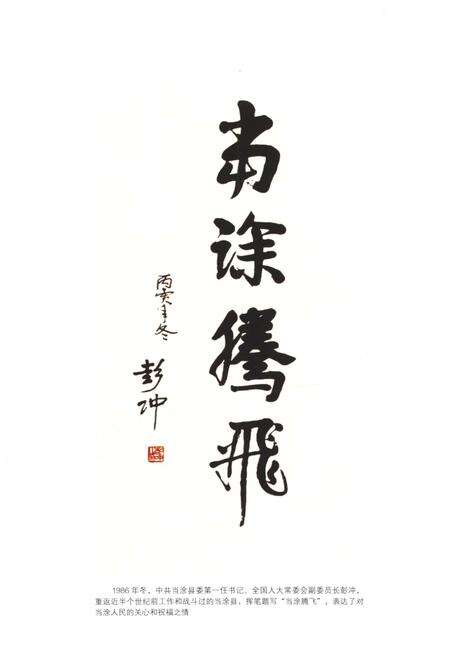 当涂腾飞
丙寅年冬
彭冲
1986年冬，中共当涂县委第一任书记、全国人大常委会副委员长彭冲，
重返近半个世纪前工作和战斗过的当涂县，挥笔题写“当涂腾飞”，表达了对
当涂人民的关心和祝福之情